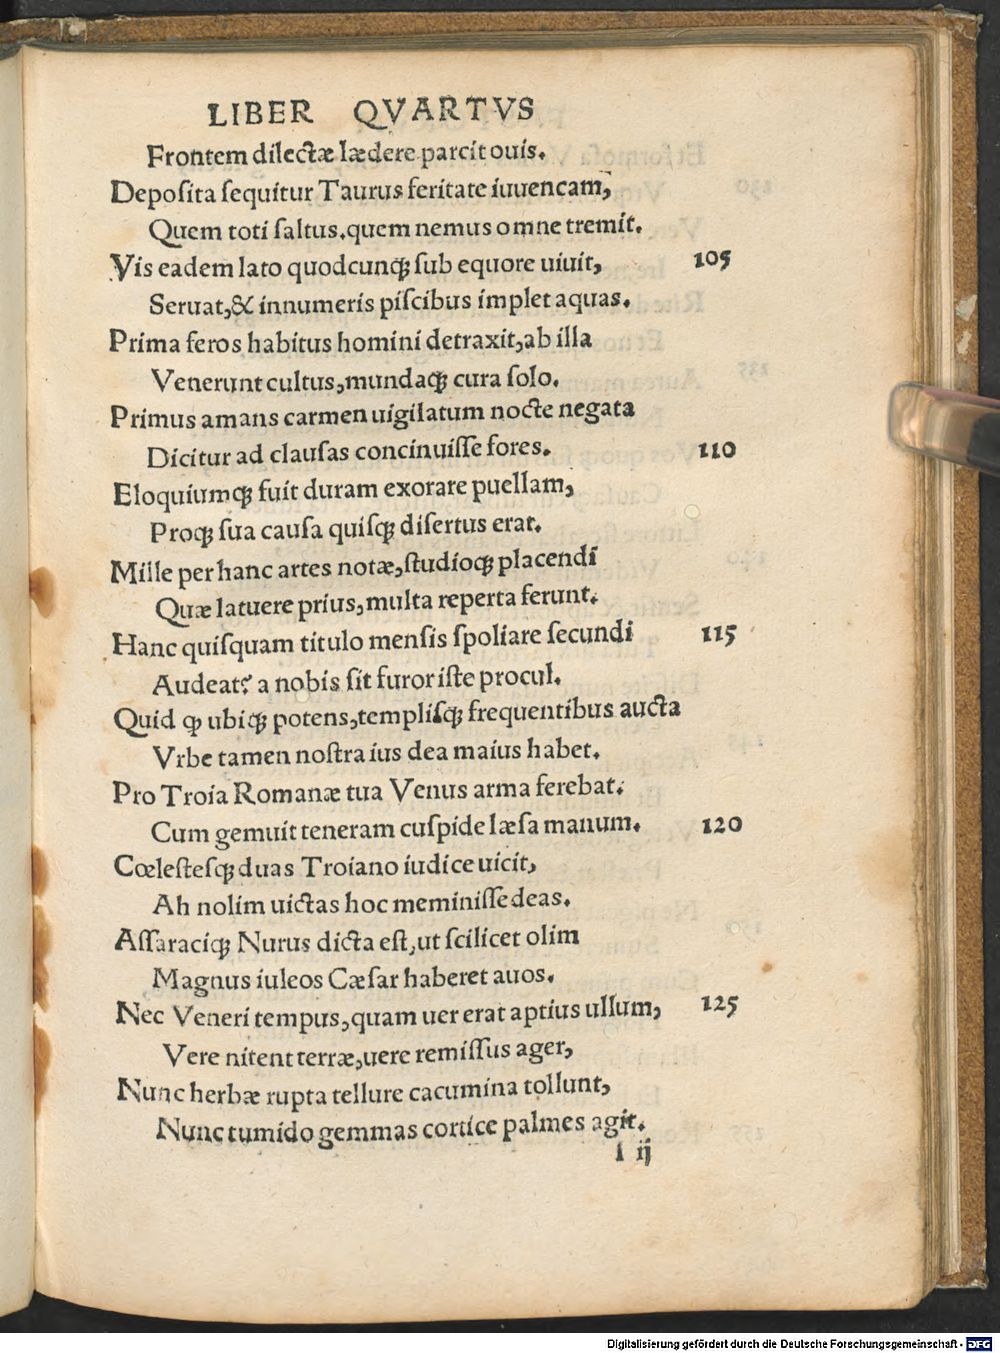 LIBER QVARTVS
Frontem dilectæ lædere parcit ouis.
Deposita ſequitur Taurus feritate iuuencam,
Quem toti ſaltus.quem nemus omne tremit.
Vis eadem lato quodcunqꝫ ſub equore uiuit, 105
Seruat,& innumeris piſcibus implet aquas.
Prima feros habitus homini detraxit,ab illa
Venerunt cultus,mundaqꝫ cura ſolo.
Primus amans carmen uigilatum nocte negata
Dicitur ad clauſas concinuiſſe fores. 110
Eloquiumqꝫ fuit duram exorare puellam,
Proqꝫ ſua cauſa quiſqꝫ diſertus erat.
Mille per hanc artes notæ,ſtudioqꝫ placendi
Quæ latuere prius,multa reperta ferunt.
Hanc quiſquam titulo menſis ſpoliare ſecundi 115
Audeat? a nobis ſit furor iſte procul.
Quid ꝙ ubiqꝫ potens,templiſqꝫ frequentibus aucta
Vrbe tamen noſtra ius dea maius habet.
Pro Troia Romanæ tua Venus arma ferebat.
Cum gemuit teneram cuſpide læſa manum. 120
Cœleſteſqꝫ duas Troiano iudice uicit,
Ah nolim uictas hoc meminiſſe deas.
Aſſaraciqꝫ Nurus dicta eſt,ut ſcilicet olim
Magnus iuleos Cæſar haberet auos.
Nec Veneri tempus,quam uer erat aptius ullum, 125
Vere nitent terræ,uere remiſſus ager,
Nunc herbæ rupta tellure cacumina tollunt,
Nunc tumido gemmas cortice palmes agit.
I ij
Digitalisierung gefördert durch die Deutsche Forschungsgemeinschaft - DFG